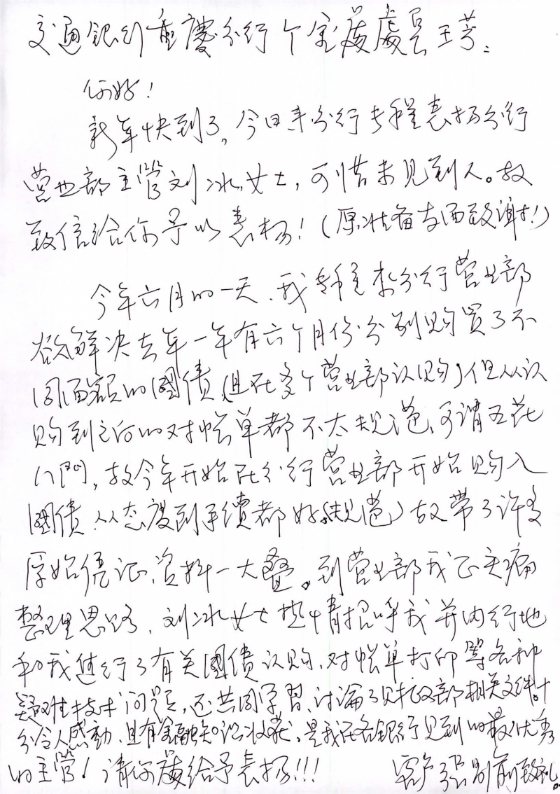 交通銀行重慶分行个金處處長王芳:
你好!
新年快到了,今日来分行专程表扬分行
营业部主管刘冰女士,可惜未见到人。故
致信给你予以表扬!(原准备当面致谢!)
今年六月的一天,我专程来分行营业部
欲解决去年一年有六个月份分别购買了不
同面额的國债(且在多个营业部认购)但从认
购到之后的对帐单都不太规范,可谓五花
八門,故今年开始在分行营业部开始购入
國债(从态度到手续都好、规范)故带了许多
原始凭证、资料一大叠。到营业部我正头痛
整理思路,刘冰女士热情招呼我并内行地
和我进行了有关國债认购,对帐单打印等各种
疑难技术问题,还共同学習,讨論了财政部相关文件十
分令人感动,且有金融知识收获,是我在各银行见到的最优秀
的主管!请你處给予表扬!!! 客户 致礼。